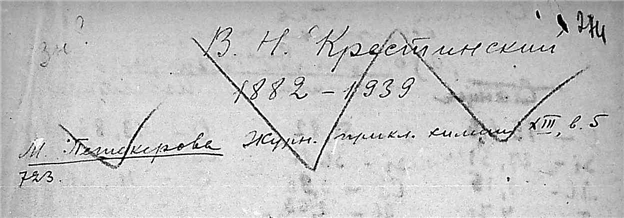 зн?
В. Н. Крестинский
1882 – 1939
М. Петекерова Журн. прикл. химии XIII, в. 5
723.